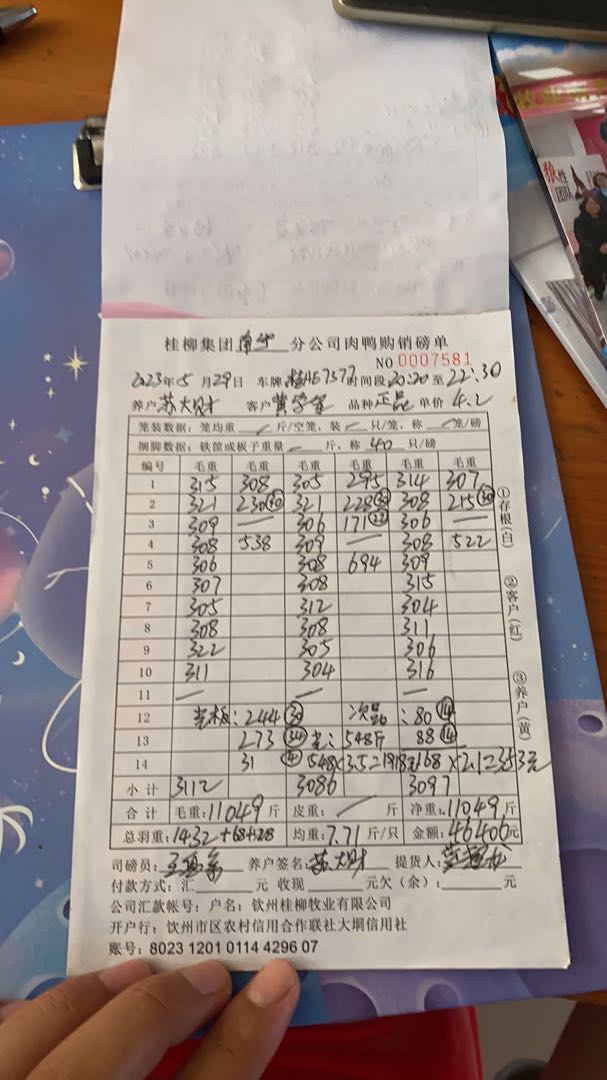 桂柳集团 分公司肉鸭购销磅单
NO 0007581
2023年5月29日 车牌 桂AE7377 时间段20:20至22:30
养户 苏大财 客户 黄 品种 正品 单价 4.2
笼装数据: 笼均重 斤/空笼, 装 只/笼, 称 笼/磅
捆脚数据: 铁筐或板子重量 斤、称 40 只/磅
编号 毛重 毛重 毛重 毛重 毛重 毛重
1 315 308 305 295 314 307
2 321 230(30) 321 228(30) 308 215(30)
3 309 — 306 171(22) 306 —
4 308 538 309 — 308 522
5 306 308 694 309
6 307 308 315
7 305 312 304
8 308 308 311
9 322 305 306
10 311 304 316
11 — — —
12 光板: 244(30) 次品: 80(14)
13 273(34) 光: 548斤 88(14)
14 31(4) 548×3.5=1918元 168×2.1=353元
小计 3112 3086 3097
合计 毛重: 11049斤 皮重: / 斤 净重: 11049斤
总羽重: 1432+68+28 均重: 7.71斤/只 金额: 46406元
司磅员: 养户签名: 苏大财 提货人:
付款方式: 汇 元 收现 元欠(余): 元
公司汇款帐号: 户名: 钦州桂柳牧业有限公司
开户行: 钦州市区农村信用合作联社大垌信用社
账号: 8023 1201 0114 4296 07
①存根(白)
②客户(红)
③养户(黄)
狼性
团队